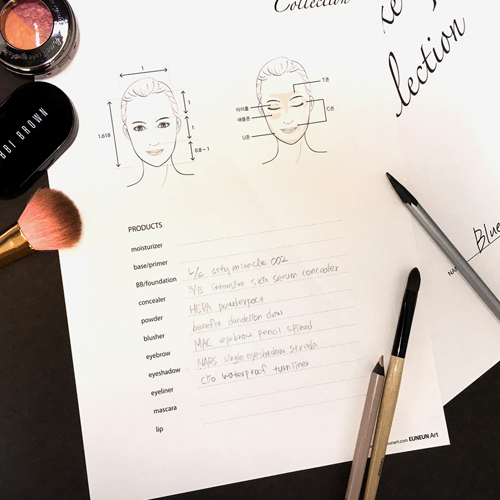 Collection
lection
BBI BROWN
1
1
1
0.8~1
1.618
T존
아이홀
애플존
C존
U존
PRODUCTS
moisturizer
base/primer
BB/foundation L/C city miracle 002
concealer B/B intensive skin serum concealer
powder HERA powderpact
blusher benefit dandelion dew
eyebrow MAC eyebrow pencil spiked
eyeshadow NARS single eyeshadow strada
eyeliner clio waterproof
mascara
lip
NA
Blue
unart.com EUNEUN Art